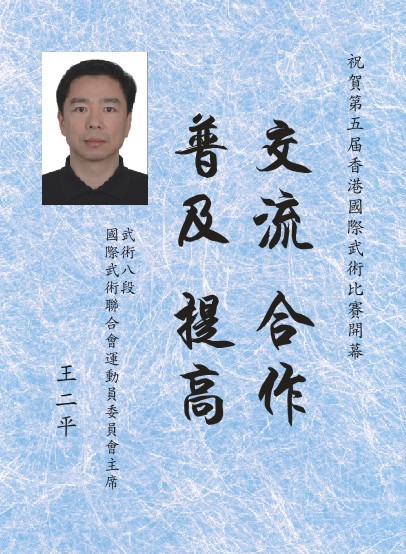 祝賀第五届香港國際武術比賽開幕
交流 合作
普及 提高
武術八段
國際武術聯合會運動員委員會主席
王二平